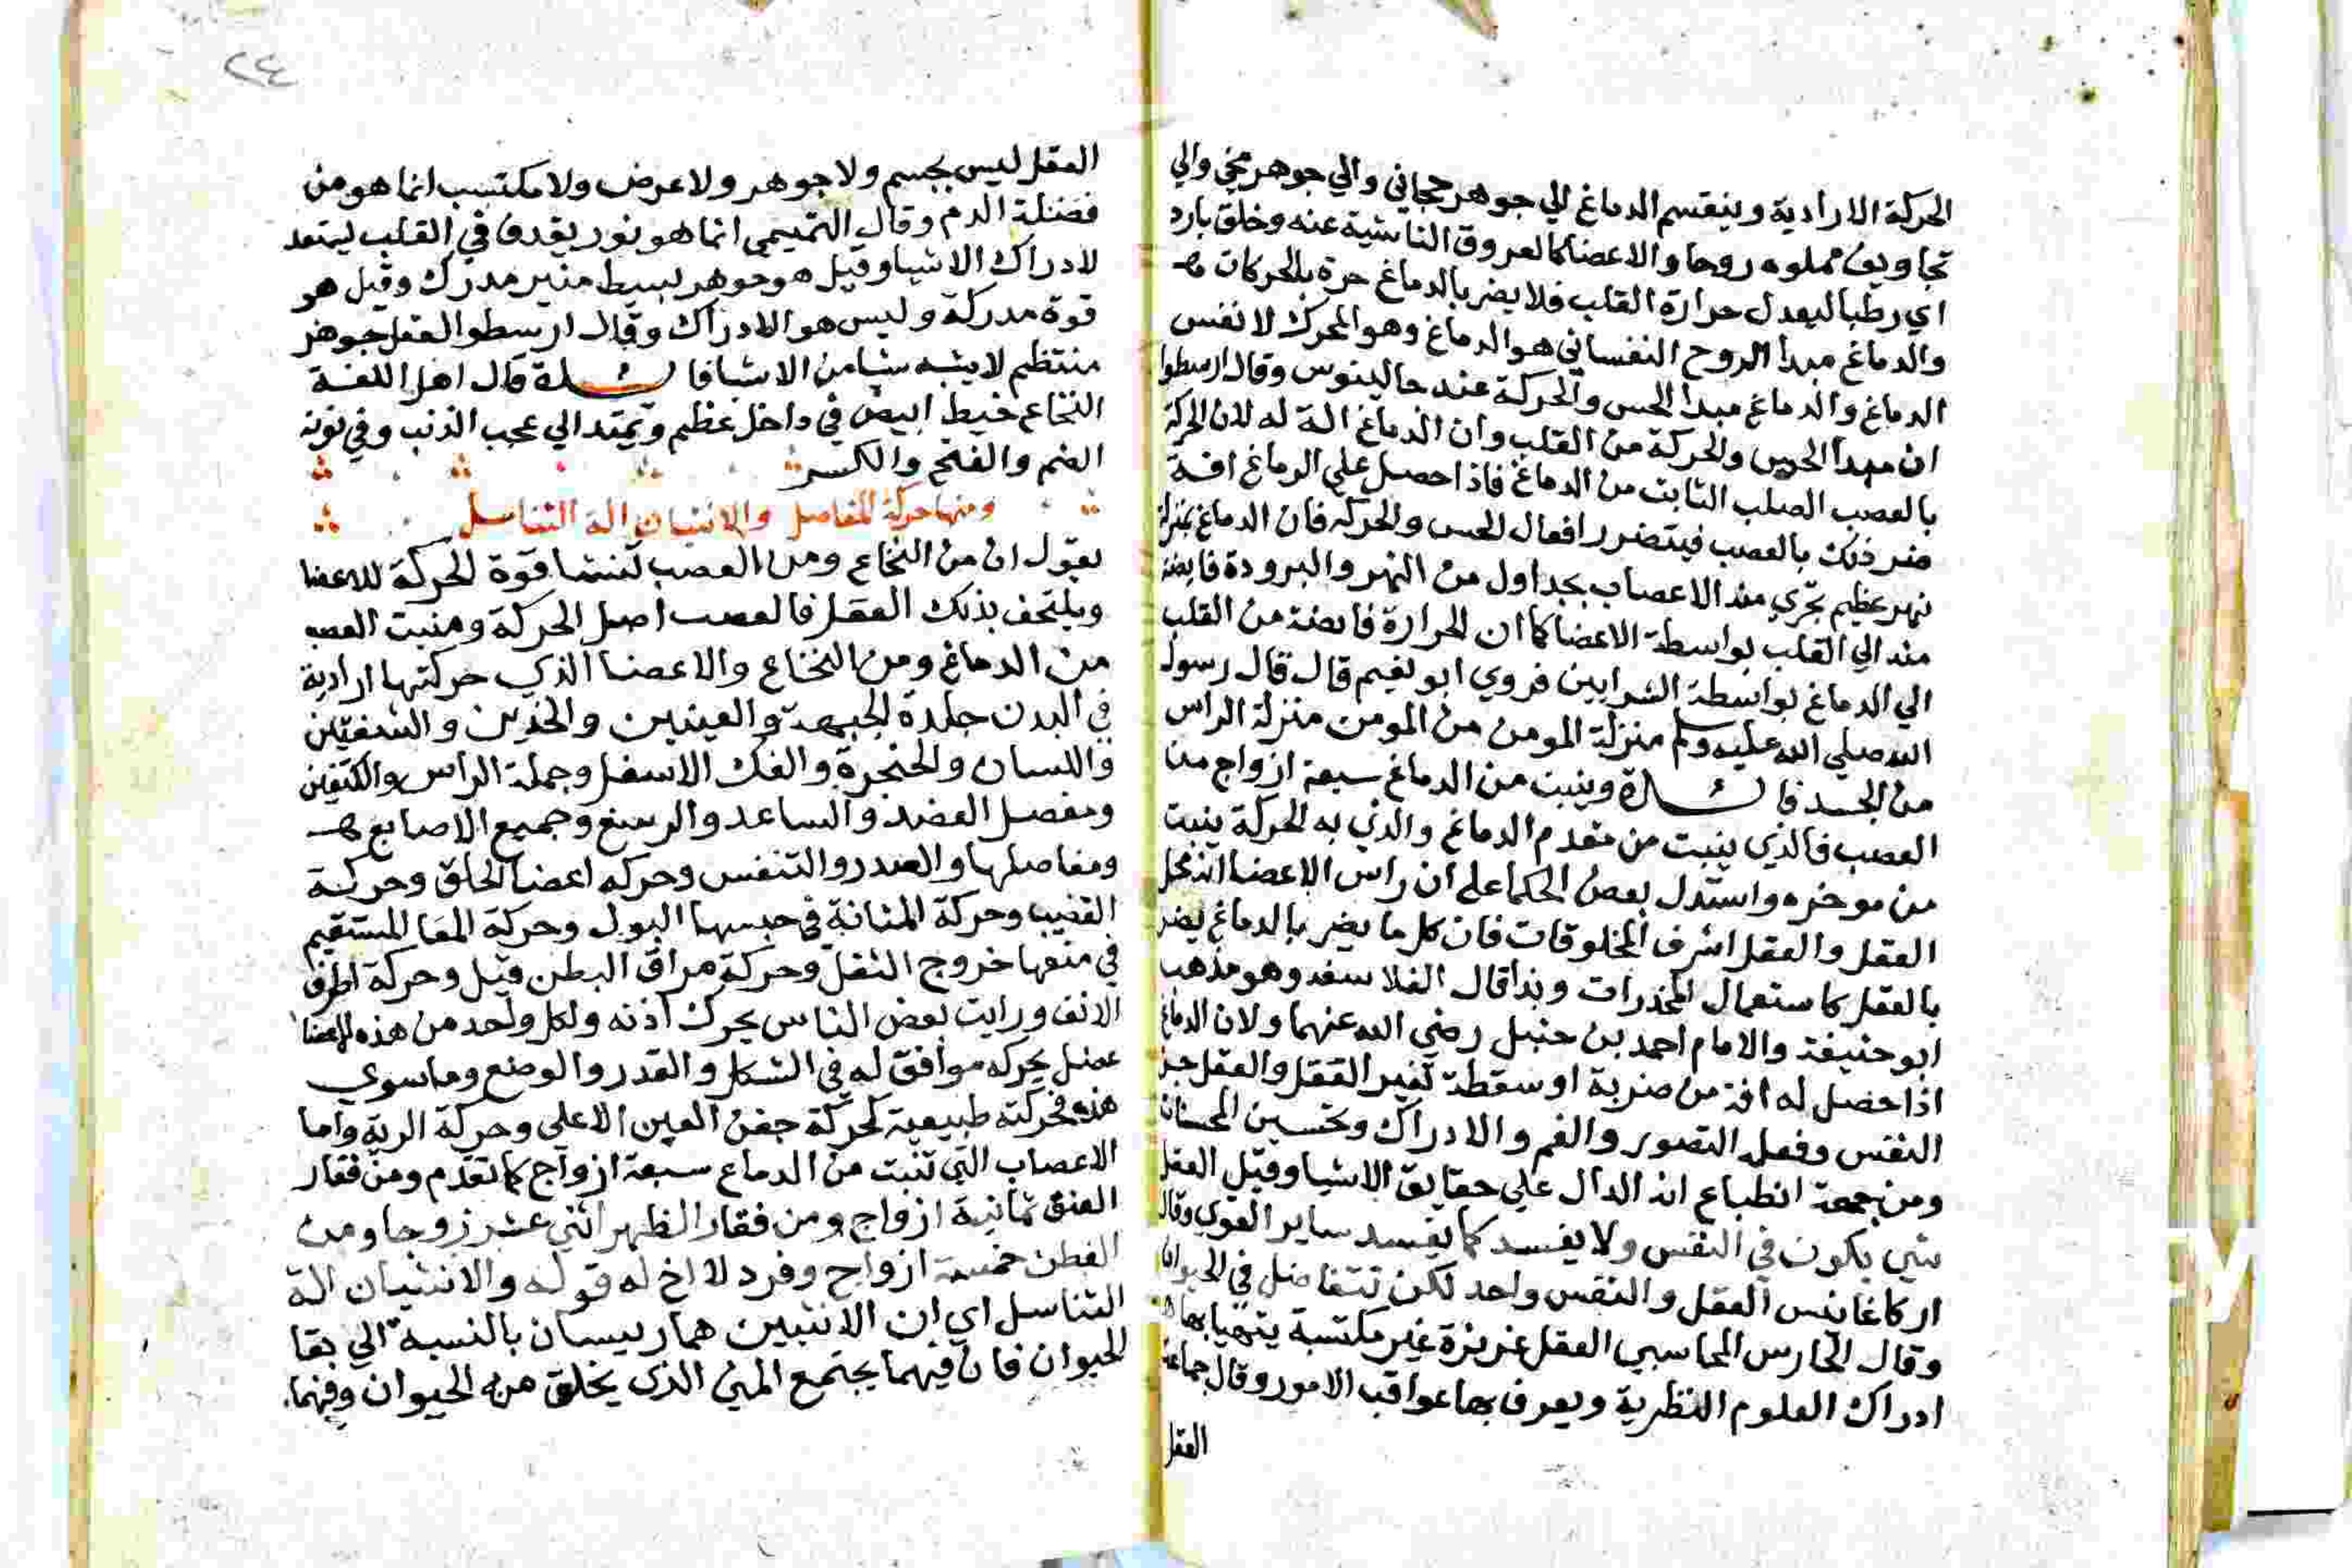 الحركة الارادية وينقسم الدماغ الي جوهر حجابي والي جوهر مخي والي
تجاويف مملوه روحا والاعضا كالعروق الناشية عنه وخلق بارد
اي رطبا ليعدل حرارة القلب فلا يضر بالدماغ حرة بالحركات
والدماغ مبدا الروح النفساني هو الدماغ وهو المحرك لانفس
الدماغ والدماغ مبدا الحس والحركة عند جالينوس وقال ارسطوا
ان مبدا الحس والحركة من القلب وان الدماغ الة له لان الحركة
بالعصب الصلب النابت من الدماغ فاذا حصل علي الدماغ افة
ضر ذلك بالعصب فيتضرر افعال الحس والحركه فان الدماغ بمنزلة
نهر عظيم تجري منه الاعصاب بجداول من النهر والبرودة فايضة
منه الي القلب بواسطة الاعضا كما ان الحرارة فايضة من القلب
الي الدماغ بواسطة الشرايين فروي ابو نعيم قال قال رسول
الله صلي الله عليه وسلم منزلة المومن من المومن منزلة الراس
من الجسد فائدة وينبت من الدماغ سبعة ازواج من
العصب فالذي ينبت من مقدم الدماغ والذي به الحركة ينبت
من موخره واستدل بعض الحكما علي ان راس الاعضا انه محل
العقل والعقل اشرف المخلوقات فان كل ما يضر بالدماغ يضر
بالعقل كاستعمال المخدرات وبذا قال الفلاسفه وهو مذهب
ابو حنيفة والامام احمد بن حنبل رضي الله عنهما ولان الدماغ
اذا حصل له افة من ضربة او سقطة تغير العقل والعقل جز
النفس وفعله التصور والفم والادراك وتحسين المحسنات
ومن جهة انطباع انه الدال علي حقايق الاشيا وقيل العقل
شي يكون في النفس ولا يفسد كما يفسد ساير القوي وقال
اركاغانس العقل والنفس واحد لكن تتفاضل في الحيوان
وقال الحارس المحاسبي العقل غريزة غير مكتسبة يتهيا بها
ادراك العلوم النظرية ويعرف بها عواقب الامور وقال جماعة
العقل
٢٤
العقل ليس بجسم ولا جوهر ولا عرض ولا مكتسب انما هو من
فضلة الدم وقال التميمي انما هو نور يقدف في القلب ليستعد
لادراك الاشيا وقيل هو جوهر بسيط منير مدرك وقيل هو
قوة مدركة وليس هو الادراك وقال ارسطو العقل جوهر
منتظم لا يشبه شيا من الاشيا فائدة قال اهل اللغة
النخاع خيط ابيض في داخل عظم ويمتد الي عجب الذنب وفي نونه
الضم والفتح والكسر
ومنها حركة المفاصل والانثيان الة التناسل
يقول ان من النخاع ومن العصب تنشا قوة الحركة للاعضا
ويلتحف بذلك العقل فالعصب اصل الحركة ومنبت العصب
من الدماغ ومن النخاع والاعضا الذي حركتها ارادية
في البدن جلدة الجبهة والعينين والخدين والشفتين
واللسان والحنجرة والفك الاسفل وجملة الراس والكتفين
ومفصل العضد والساعد والرسغ وجميع الاصابع
ومفاصلها والصدر والتنفس وحركه اعضا الحلق وحركة
القضيب وحركة المثانة في حبسها البول وحركة المعا المستقيم
في منعها خروج الثفل وحركة مراق البطن قيل وحركة اطرف
الانف ورايت بعض الناس يحرك اذنه ولكل واحد من هذه الاعضا
عضل يحركه موافق له في الشكل والقدر والوضع وما سوي
هذه فحركته طبيعية كحركة جفن العين الاعلي وحركة الرية واما
الاعصاب التي تنبت من الدماع سبعة ازواج كما تقدم ومن فقار
العنق ثمانية ازواج ومن فقار الظهر اثني عشر زوجا ومن
القطن خمسة ازواج وفرد لا اخ له قوله والانثيان الة
التناسل اي ان الانثيين هما رييسان بالنسبة الي بقا
الحيوان فان فيهما يجتمع المني الذي يخلق منه الحيوان وفيهما